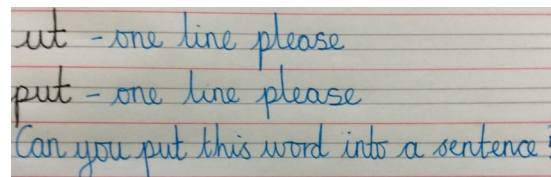 ut - one line please
put - one line please
Can you put this word into a sentence?